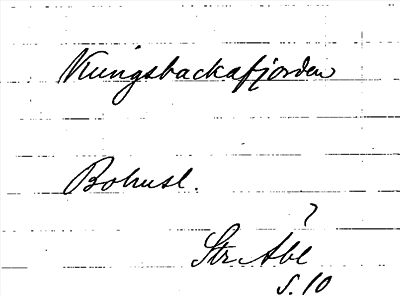 Kungsbackafjorden
Bohusl.
?
Str Abl
S. 10